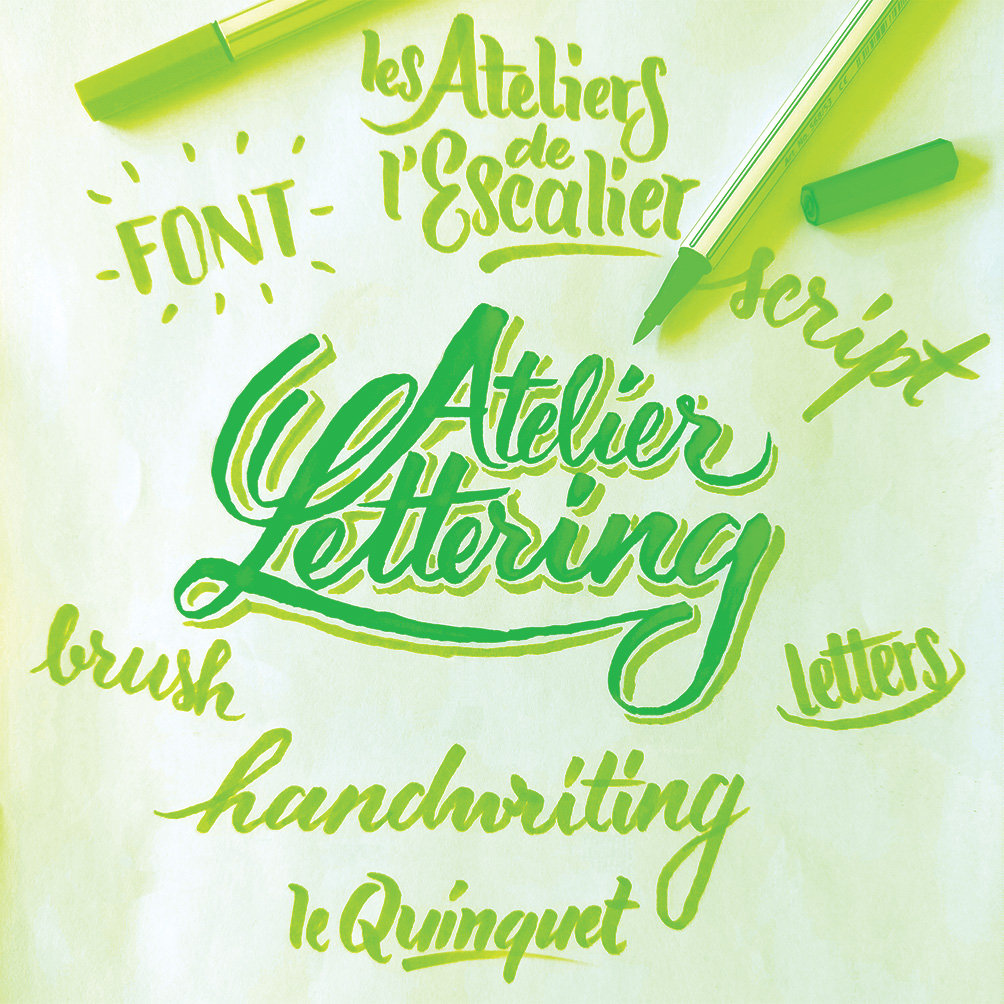 les Ateliers
de
l'Escalier
FONT
script
Atelier
Lettering
brush
letters
handwriting
le Quinquet